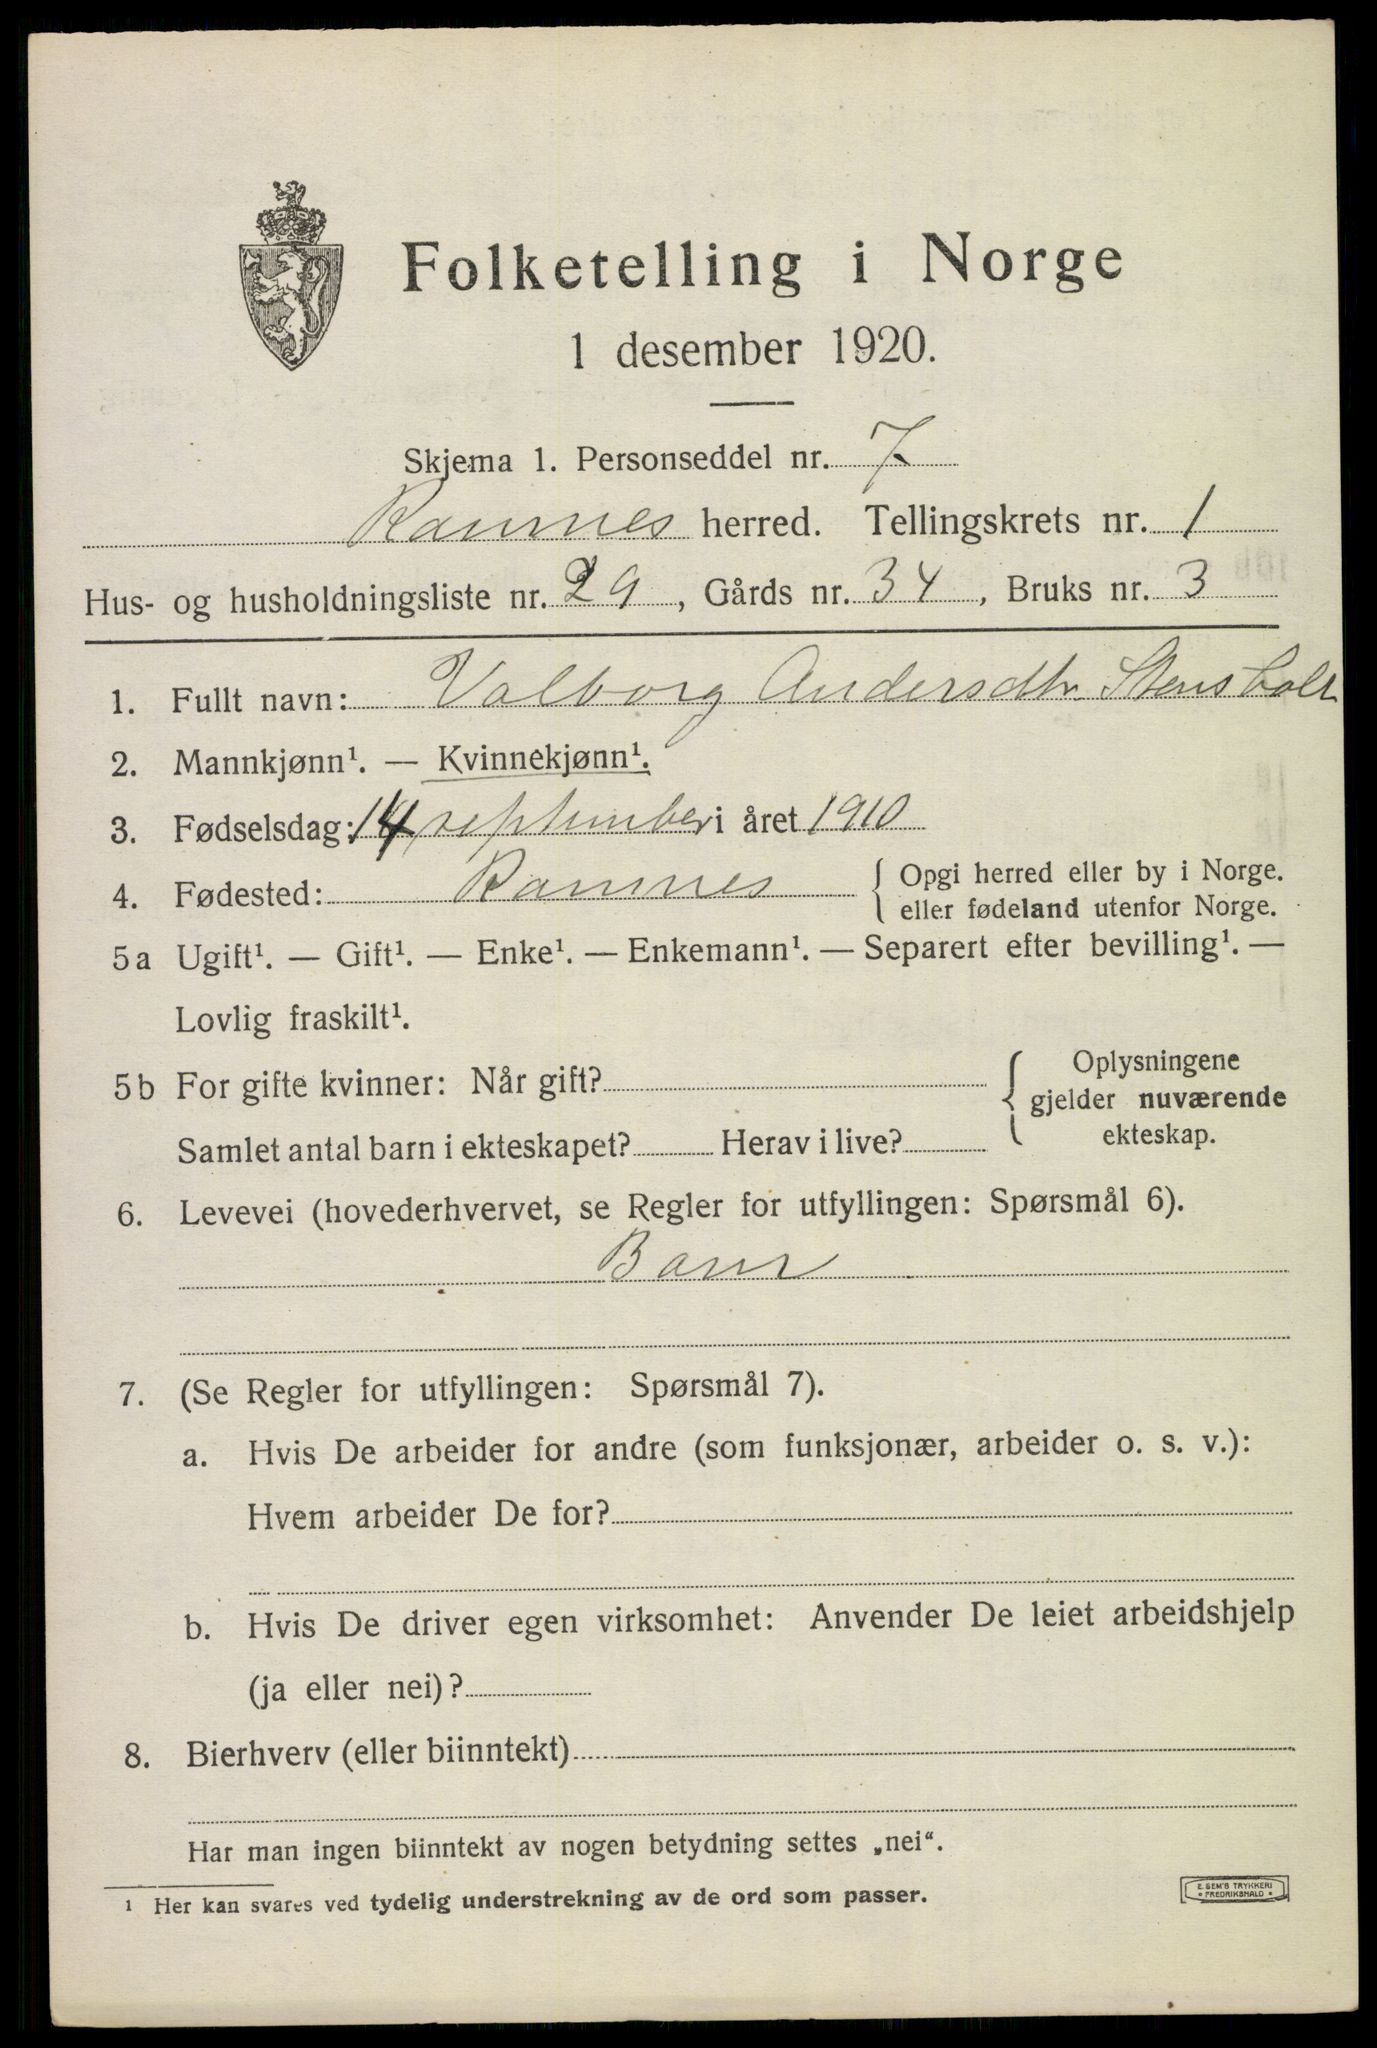 Folketelling i Norge
1 desember 1920.
Skjema 1. Personseddel nr. 7
Ramnes herred. Tellingskrets nr. 1
Hus- og husholdningsliste nr. 29, Gårds nr. 34, Bruks nr. 3
1. Fullt navn: Valborg Andersdtr. Stensholt
2. Mannkjønn¹. — Kvinnekjønn¹.
3. Fødselsdag: 14 september i året 1910
4. Fødested: Ramnes { Opgi herred eller by i Norge.
eller fødeland utenfor Norge.
5a Ugift¹. — Gift¹. — Enke¹. — Enkemann¹. — Separert efter bevilling¹. —
Lovlig fraskilt¹.
5b For gifte kvinner: Når gift?
Samlet antal barn i ekteskapet? Herav i live?
{ Oplysningene
gjelder nuværende
ekteskap.
6. Levevei (hovederhvervet, se Regler for utfyllingen: Spørsmål 6).
Barn
7. (Se Regler for utfyllingen: Spørsmål 7).
a. Hvis De arbeider for andre (som funksjonær, arbeider o. s. v.):
Hvem arbeider De for?
b. Hvis De driver egen virksomhet: Anvender De leiet arbeidshjelp
(ja eller nei)?
8. Bierhverv (eller biinntekt)
Har man ingen biinntekt av nogen betydning settes „nei“.
1 Her kan svares ved tydelig understrekning av de ord som passer.
E. SEM'S TRYKKERI
• FREDRIKSHALD •